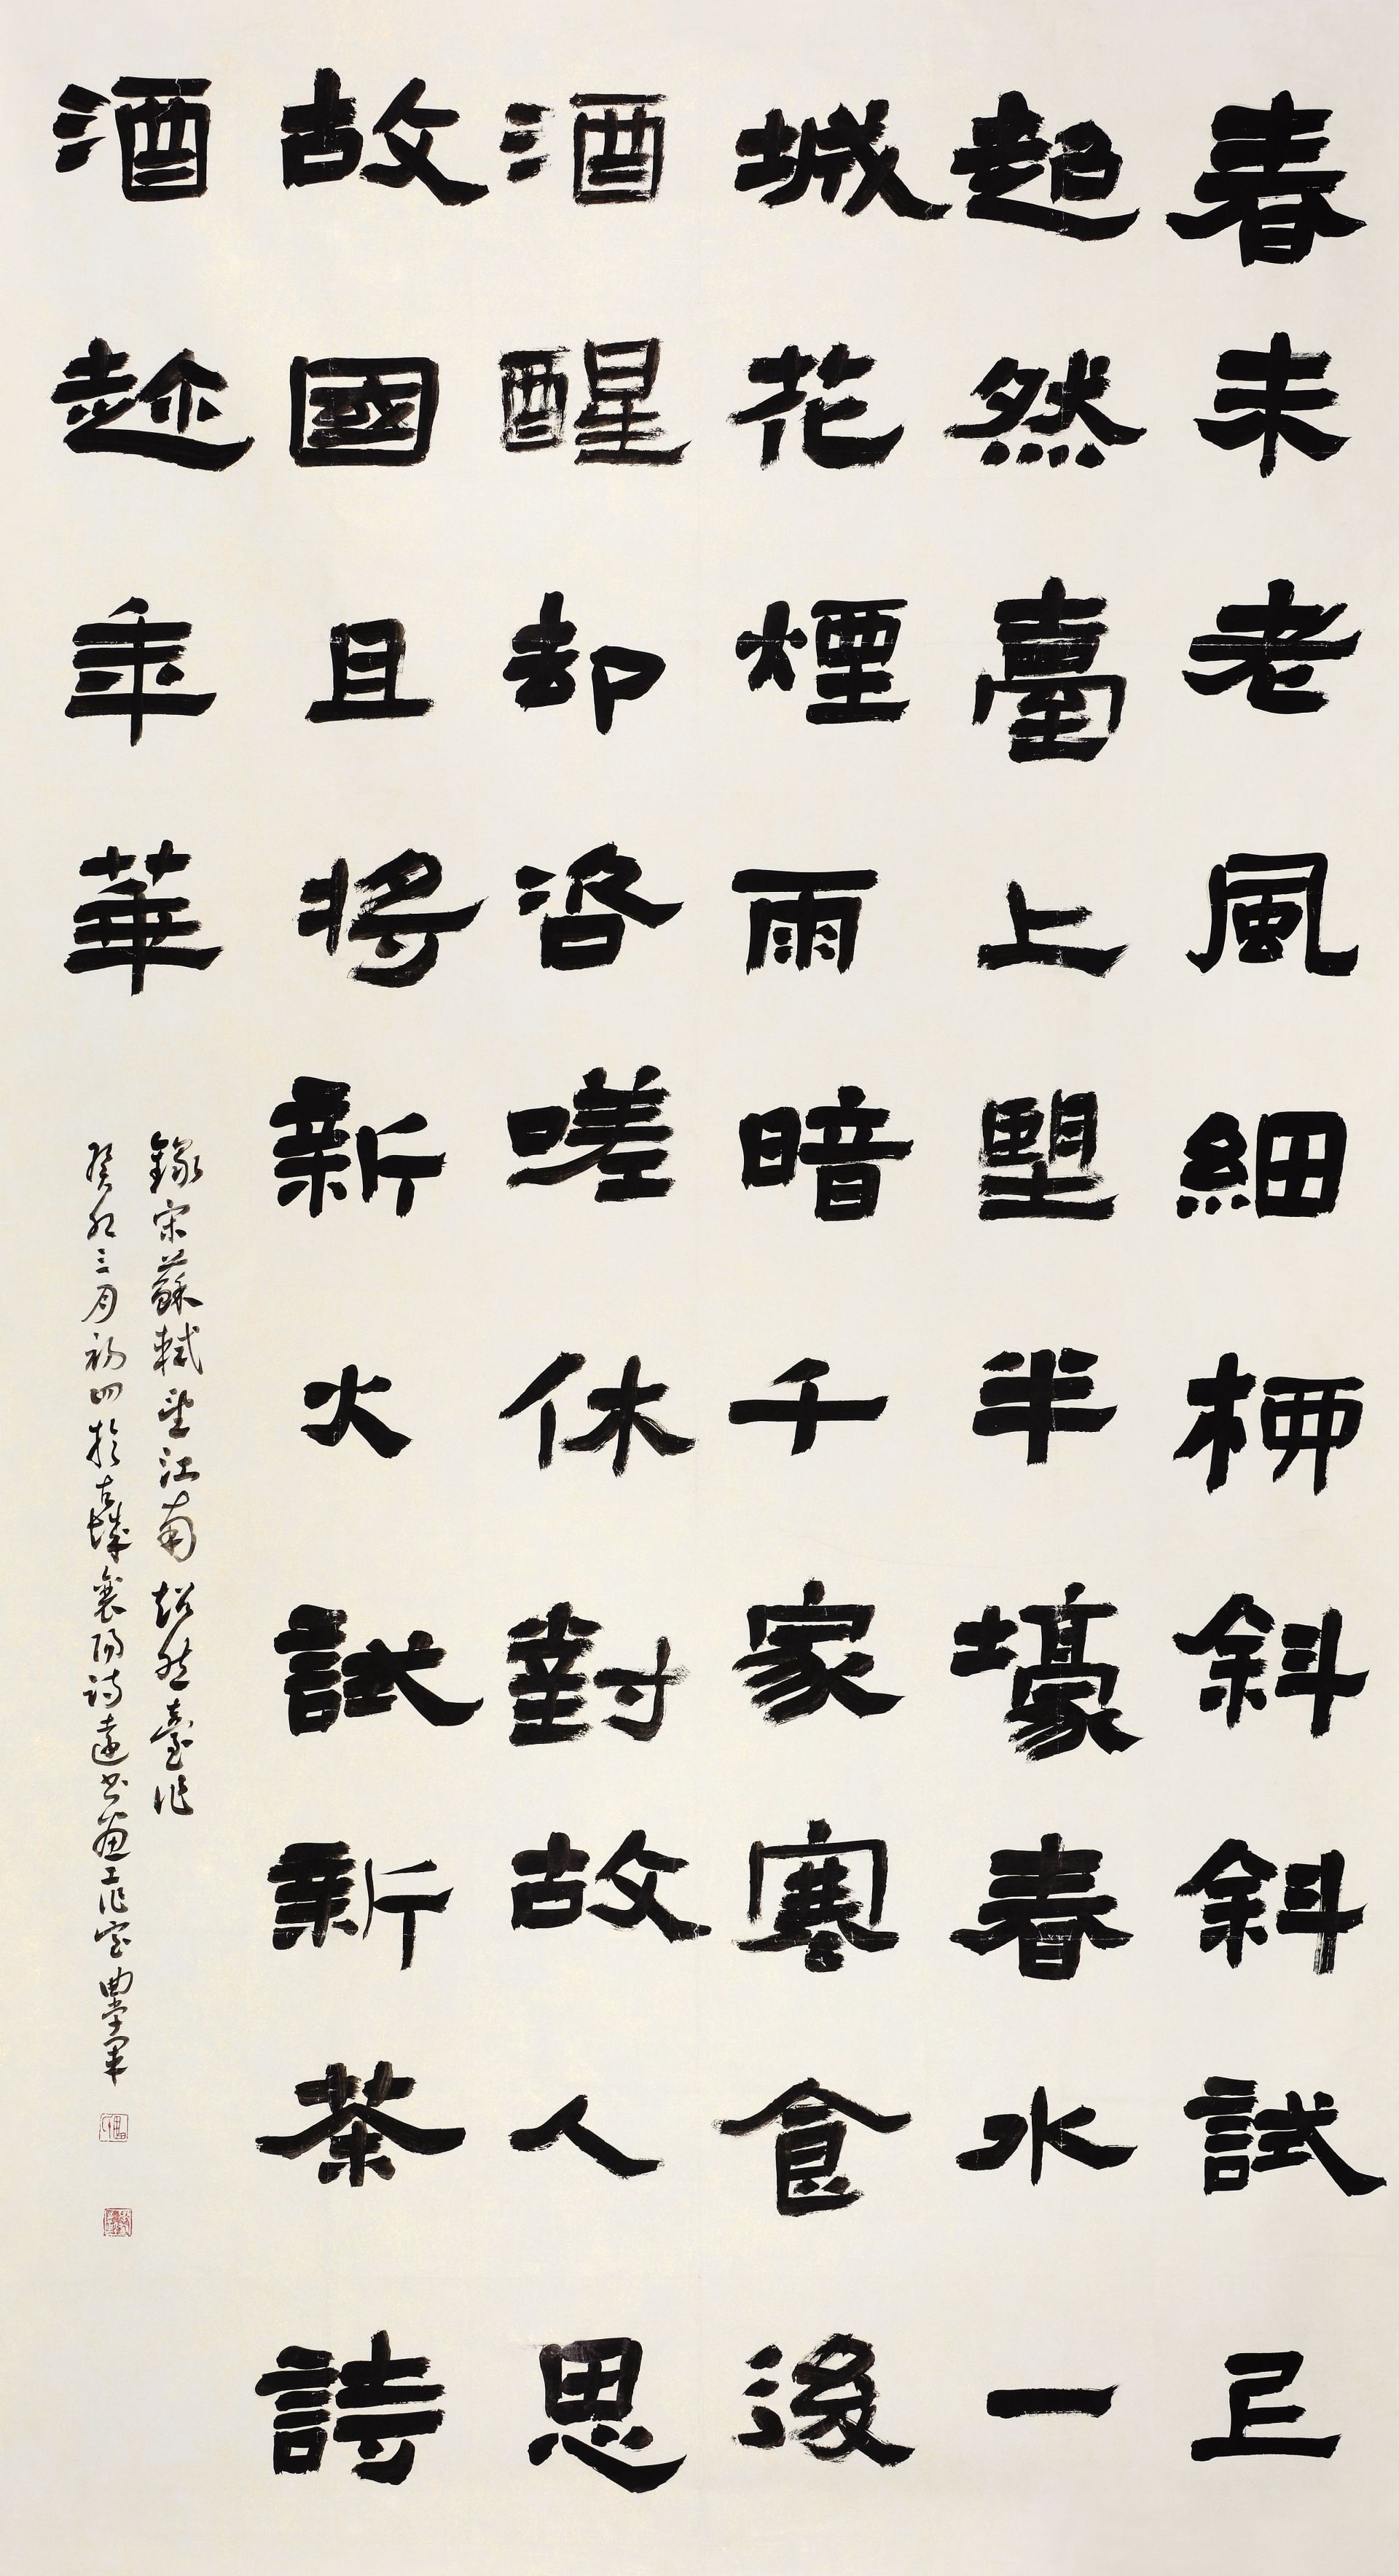 春未老風細柳斜斜試上
超然臺上望半壕春水一
城花煙雨暗千家寒食後
酒醒却咨嗟休對故人思
故國且將新火試新茶詩
酒趁年華
錄宋蘇軾望江南超然臺作
癸卯三月初四於古城襄陽詩遠書畫工作室曲學軍